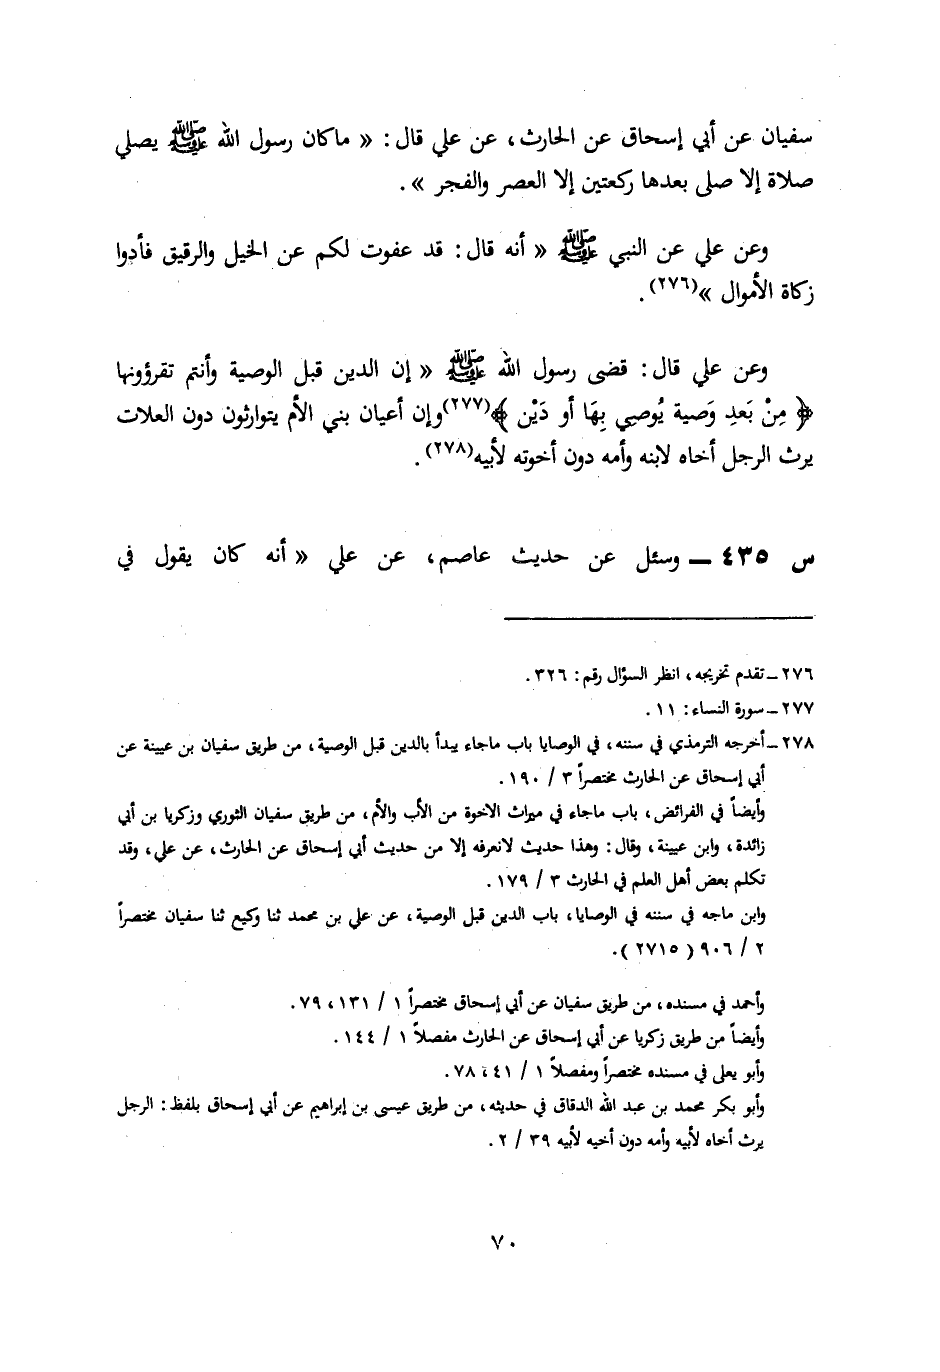 سفيان عن أبي إسحاق عن الحارث، عن علي قال: « ماكان رسول الله ﷺ يصلي
صلاة إلا صلى بعدها ركعتين إلا العصر والفجر ».
وعن علي عن النبي ﷺ « أنه قال: قد عفوت لكم عن الخيل والرقيق فأدوا
زكاة الأموال »(٢٧٦).
وعن علي قال: قضى رسول الله ﷺ « إن الدين قبل الوصية وأنتم تقرؤونها
﴿ مِنْ بَعدِ وَصية يُوصِي بِهَا أو دَيْن ﴾(٢٧٧)وإن أعيان بني الأم يتوارثون دون العلات
يرث الرجل أخاه لابنه وأمه دون أخوته لأبيه(٢٧٨).
س ٤٣٥ ــ وسئل عن حديث عاصم، عن علي « أنه كان يقول في
٢٧٦ ــ تقدم تخريجه، انظر السؤال رقم: ٣٢٦.
٢٧٧ ــ سورة النساء: ١١.
٢٧٨ ــ أخرجه الترمذي في سننه، في الوصايا باب ماجاء يبدأ بالدين قبل الوصية، من طريق سفيان بن عيينة عن
أبي إسحاق عن الحارث مختصراً ٣ / ١٩٠.
وأيضاً في الفرائض، باب ماجاء في ميراث الاخوة من الأب والأم، من طريق سفيان الثوري وزكريا بن أبي
زائدة، وابن عيينة، وقال: وهذا حديث لانعرفه إلا من حديث أبي إسحاق عن الحارث، عن علي، وقد
تكلم بعض أهل العلم في الحارث ٣ / ١٧٩.
وابن ماجه في سننه في الوصايا، باب الدين قبل الوصية، عن علي بن محمد ثنا وكيع ثنا سفيان مختصراً
٢ / ٩٠٦ ( ٢٧١٥ ).
وأحمد في مسنده، من طريق سفيان عن أبي إسحاق مختصراً ١ / ١٣١، ٧٩.
وأيضاً من طريق زكريا عن أبي إسحاق عن الحارث مفصلاً ١ / ١٤٤.
وأبو يعلى في مسنده مختصراً ومفصلاً ١ / ٤١، ٧٨.
وأبو بكر محمد بن عبد الله الدقاق في حديثه، من طريق عيسى بن إبراهيم عن أبي إسحاق بلفظ: الرجل
يرث أخاه لأبيه وأمه دون أخيه لأبيه ٣٩ / ٢.
٧٠